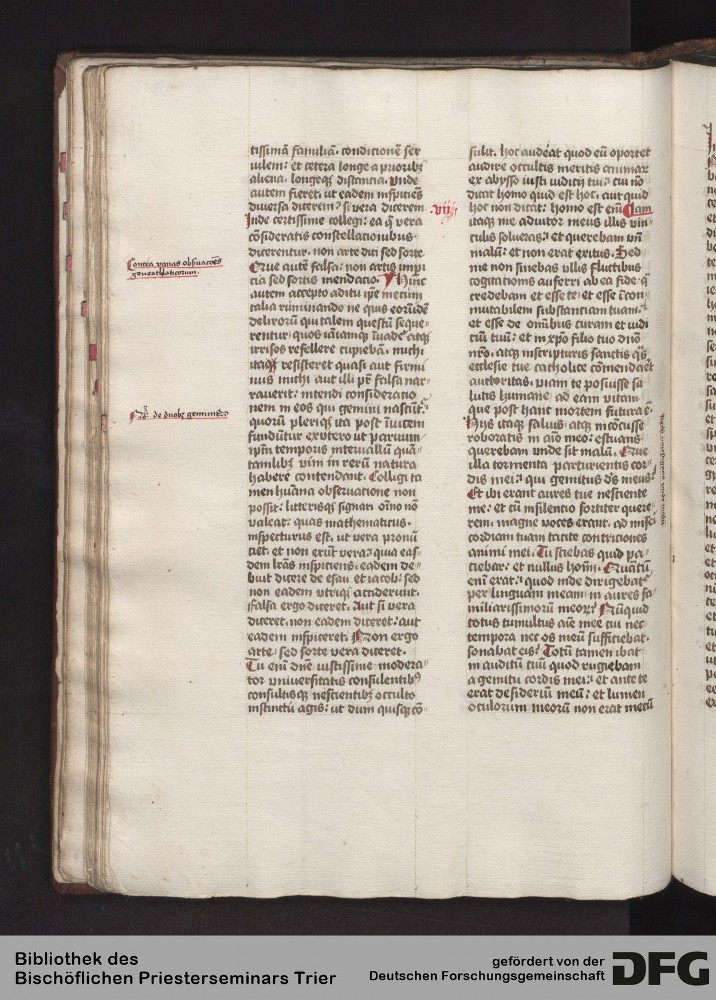 tissimā familiā. conditionē ser
uilem: et cetera longe a prioribꝫ
aliena. longeqꝫ distancia. Unde
autem fieret. ut eadem inspiciēs
diuersa dicerem: si vera dicerem
Inde certissime collegi: ea q̄ vera
cōsideratis constellationibus
dicerentur. non arte dici sed sorte
Que autē falsa: non artis impi
cia sed sortis mendacio. Hinc
autem accepto aditu ip̄e mecum
talia ruminando ne quis eorūdē
delirorū qui talem questū seque
rentur quos iāiamqꝫ īuade atqꝫ
irrisos refellere cupiebā. michi
itaqꝫ resisteret quasi aut firmi
nus michi aut illi pr̄ falsa nar
rauerit: intendi consideratio
nem in eos qui gemini nascūt̄.
quorū pleriqꝫ ita post īuicem
fundūtur ex utero ut paruum
ip̄m temporis interuallū quā
tamlibꝫ vim in rerū natura
habere contendant. Colligi ta
men huāna obseruatione non
possit: litterisqꝫ signari oīno nō
valeat: quas mathematicus.
inspecturus est. ut vera pronū
ciet. et non erūt vera: quia eas
dem lr̄as inspiciens. eadem de
buit dicere de esau et iacob: sed
non eadem utriqꝫ acciderunt.
Falsa ergo diceret. Aut si vera
diceret. non eadem diceret: aut
eadem inspiceret. Non ergo
arte. sed sorte vera diceret.
Tu eni᷒ dn̄e iustissime modera
tor vniuersitatis consulentibꝫ
consultisqꝫ nescientibꝫ occulto
instinctu agis: ut dum quisqꝫ cō
Contra vanas obseruacōes
geneathliaticorum.
de duobꝫ geminis
sulit. hoc audeat quod eū oportet
audire occultis meritis animar̄
ex abysso iusti iudicij tui: cui nō
dicat homo quid est hoc. aut quid
hoc non dicat: homo est eni᷒ Iam
vij
itaqꝫ me adiutor meus illis vin
culis solueras: et querebam vn̄
malū: et non erat exitus. Sed
me non sinebas vllis fluctibus
cogitationis auferri ab ea fide. q̄
credebam et esse te: et esse īcom
mutabilem substantiam tuam.
et esse de omībus curam et iudi
ciū tuū: et in xp̄o filio tuo dn̄o
nr̄o. atqꝫ inscripturis sanctis qͣs
ecclesie tue catholice cōmendaēt
auctoritas. viam te posuisse sa
lutis humane. ad eam vitam
que post hanc mortem futura ē.
Hijs itaqꝫ saluis. atqꝫ incōcusse
roboratis in aīo meo: estuans
querebam unde sit malū. Que
illa tormenta parturientis cor
dis mei: qui gemitus ds̄ meus
Et ibi erant aures tue nesciente
me: et cū insilentio fortiter quere
rem. magne voces erant. ad misēi
cordiam tuam tacite contriciones
animi mei. Tu sciebas quid pa
ciebar. et nullus homī. Quātū
enī erat: quod inde dirigebat̄
per linguam meam in aures fa
miliarissimorū meor̄: Nūquid
totus tumultus aīe mee cui nec
tempora nec os meū sufficiebat.
sonabat eis: Totū tamen ibat
in auditū tuū quod rugiebam
a gemitu cordis mei: et ante te
erat desideriū meū: et lumen
oculorum meorū non erat mecū
Bibliothek des
Bischöflichen Priesterseminars Trier
gefördert von der
Deutschen Forschungsgemeinschaft
DFG